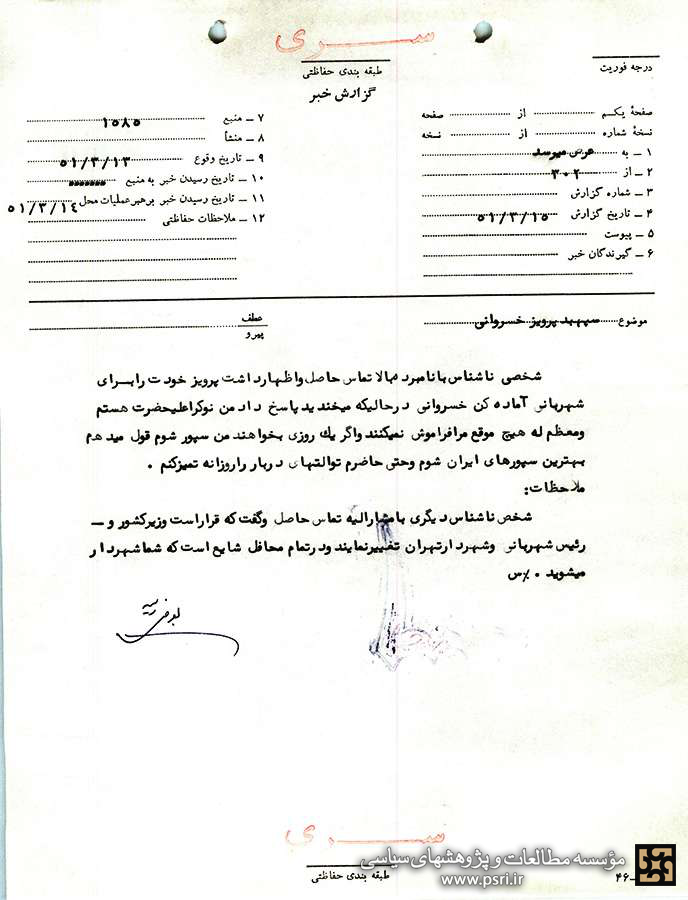 سری
طبقه بندی حفاظتی
گزارش خبر
درجه فوریت
صفحهٔ یکم از صفحه
نسخهٔ شماره از نسخه
۱ ـ به عرض میرسد
۲ ـ از ۳۰۲
۳ ـ شماره گزارش
۴ ـ تاریخ گزارش ۵۱/۳/۱۵
۵ ـ پیوست
۶ ـ گیرندگان خبر
۷ ـ منبع ۱۵۸۵
۸ ـ منشأ
۹ ـ تاریخ وقوع ۵۱/۳/۱۳
۱۰ ـ تاریخ رسیدن خبر به منبع
۱۱ ـ تاریخ رسیدن خبر برهبرعملیات محل ۵۱/۳/۱۴
۱۲ ـ ملاحظات حفاظتی
موضوع سپهبد پرویز خسروانی
عطف
پیرو
شخصی ناشناس با نامبرده بالا تماس حاصل واظهارداشت پرویز خودت رابرای
شهربانی آماده کن خسروانی درحالیکه میخندید پاسخ داد من نوکراعلیحضرت هستم
ومعظم له هیچ موقع مرافراموش نمیکنند واگر یك روزی بخواهند من سپور شوم قول میدهم
بهترین سپورهای ایران شوم وحتی حاضرم توالتهای دربار راروزانه تمیزکنم .
ملاحظات:
شخص ناشناس دیگری با مشارالیه تماس حاصل وگفت که قراراست وزیرکشور و ـ
رئیس شهربانی وشهردارتهران تغییرنمایند ودرتمام محافل شایع است که شماشهردار
میشوید . %س
سری
طبقه بندی حفاظتی
مؤسسه مطالعات و پژوهشهای سیاسی
www.psri.ir
ـ۴۶